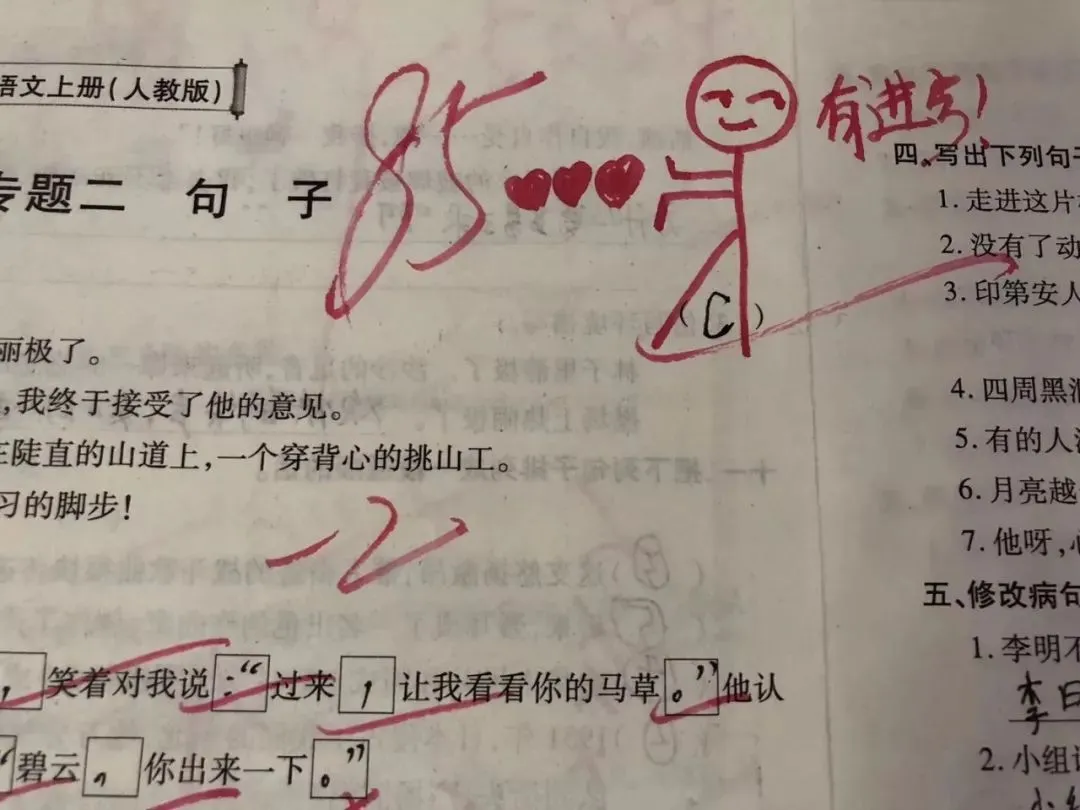 语文上册(人教版)
85
有进步!
专题二 句 子
(C)
丽极了。
,我终于接受了他的意见。
在陡直的山道上,一个穿背心的挑山工。
习的脚步!
-2
,笑着对我说:“过来,让我看看你的马草。”他认
“碧云,你出来一下。”
四、写出下列句子
1.走进这片
2.没有了动
3.印第安人
4.四周黑
5.有的人
6.月亮越
7.他呀,心
五、修改病句
1.李明不
李
2.小组
小组